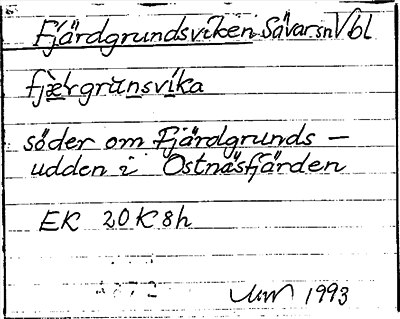 Fjärdgrundsviken Sävar sn Vbl
fjærgrunsvika
söder om Fjärdgrunds-
udden i Ostnäsfjärden
EK 20K8h
1993